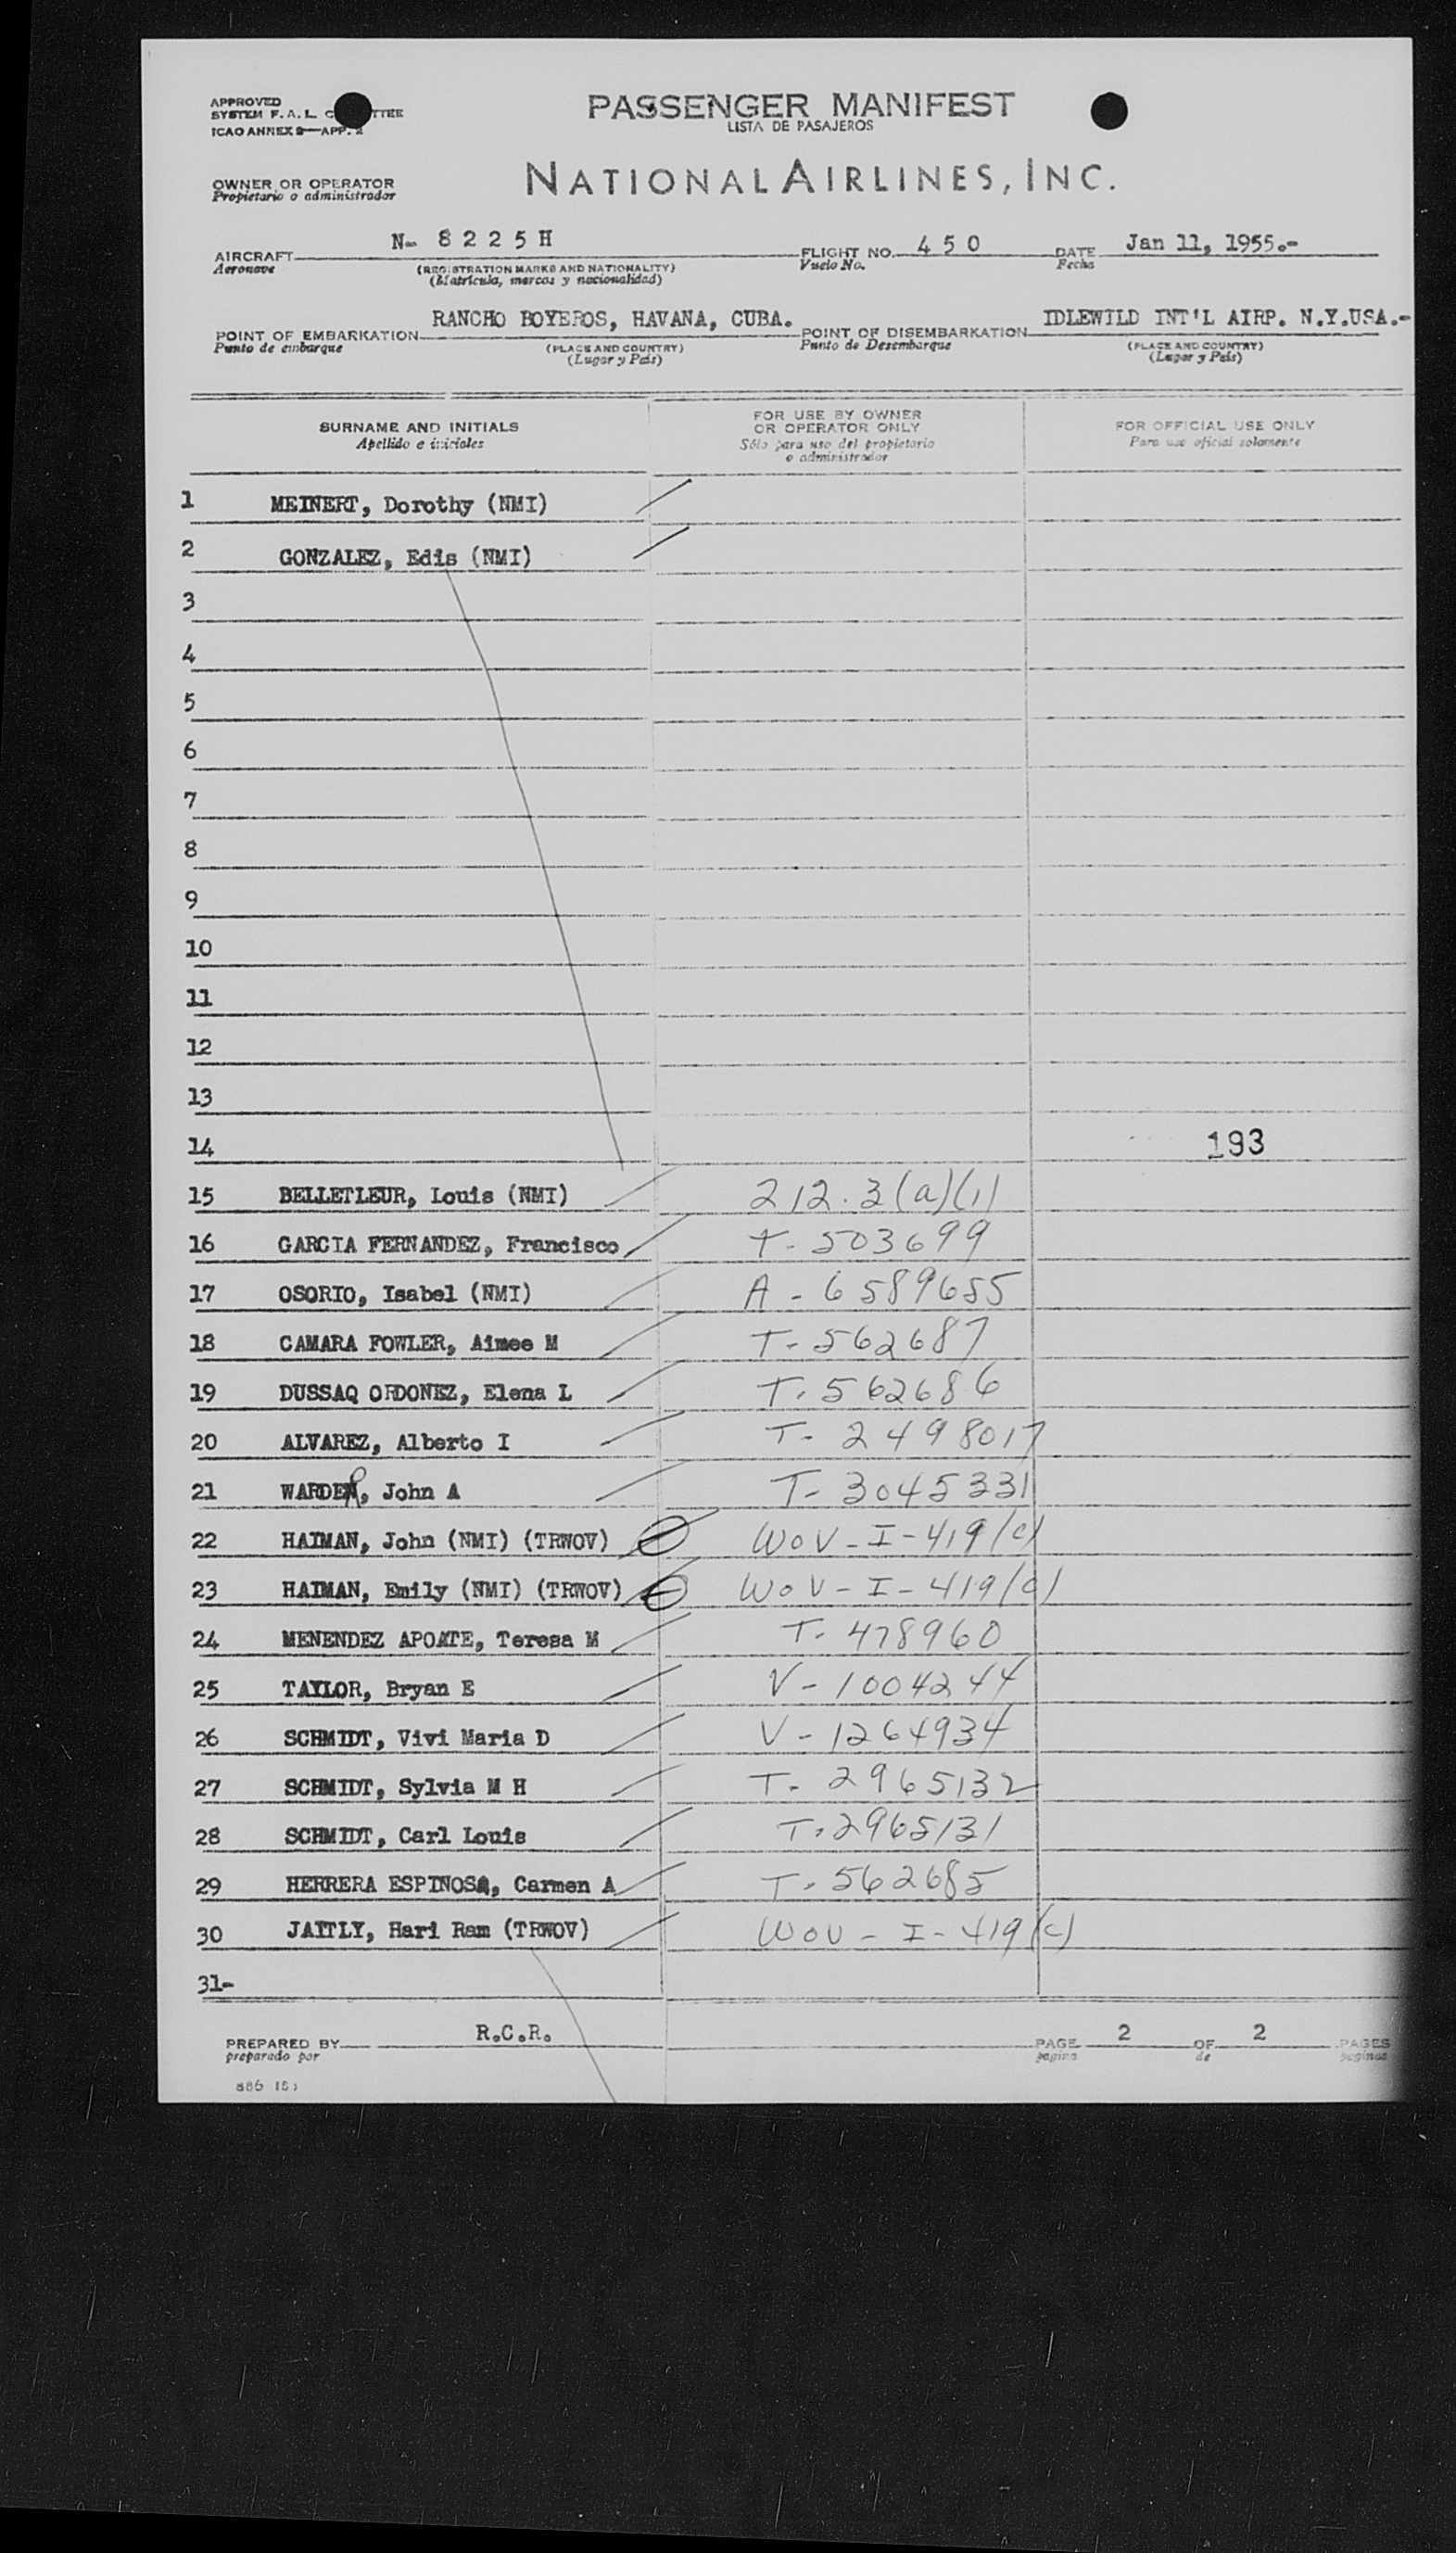 APPROVED
SYSTEM F. A. L. C TTEE
ICAO ANNEX 9—APP. 2
PASSENGER MANIFEST
LISTA DE PASAJEROS
OWNER OR OPERATOR
Propietario o administrador
NATIONAL AIRLINES, INC.
AIRCRAFT N- 8 2 2 5 H FLIGHT NO. 4 5 0 DATE Jan 11, 1955.-
Aeronave (REGISTRATION MARKS AND NATIONALITY) Vuelo No. Fecha
(Matrícula, marcas y nacionalidad)
POINT OF EMBARKATION RANCHO BOYEROS, HAVANA, CUBA. POINT OF DISEMBARKATION IDLEWILD INT'L AIRP. N.Y.USA.-
Punto de embarque (PLACE AND COUNTRY) Punto de Desembarque (PLACE AND COUNTRY)
(Lugar y País) (Lugar y País)
SURNAME AND INITIALS
Apellido e iniciales
FOR USE BY OWNER
OR OPERATOR ONLY
Sólo para uso del propietario
o administrador
FOR OFFICIAL USE ONLY
Para uso oficial solamente
1 MEINERT, Dorothy (NMI)
2 GONZALEZ, Edis (NMI)
3
4
5
6
7
8
9
10
11
12
13
14 193
15 BELLETLEUR, Louis (NMI) 212.3(a)(1)
16 GARCIA FERNANDEZ, Francisco T- 503699
17 OSORIO, Isabel (NMI) A - 6589655
18 CAMARA FOWLER, Aimee M T- 562687
19 DUSSAQ ORDONEZ, Elena L T. 562686
20 ALVAREZ, Alberto I T- 2498017
21 WARDER, John A T- 3045331
22 HAIMAN, John (NMI) (TRWOV) WOV - I - 419(c)
23 HAIMAN, Emily (NMI) (TRWOV) WOV - I - 419(c)
24 MENENDEZ APOATE, Teresa M T. 478960
25 TAYLOR, Bryan E V - 1004244
26 SCHMIDT, Vivi Maria D V - 1264934
27 SCHMIDT, Sylvia M H T- 2965132
28 SCHMIDT, Carl Louis T. 2965131
29 HERRERA ESPINOSA, Carmen A T. 562685
30 JAITLY, Hari Ram (TRWOV) WOV - I - 419(c)
31-
PREPARED BY R.C.R. PAGE 2 OF 2 PAGES
preparado por pagina de paginas